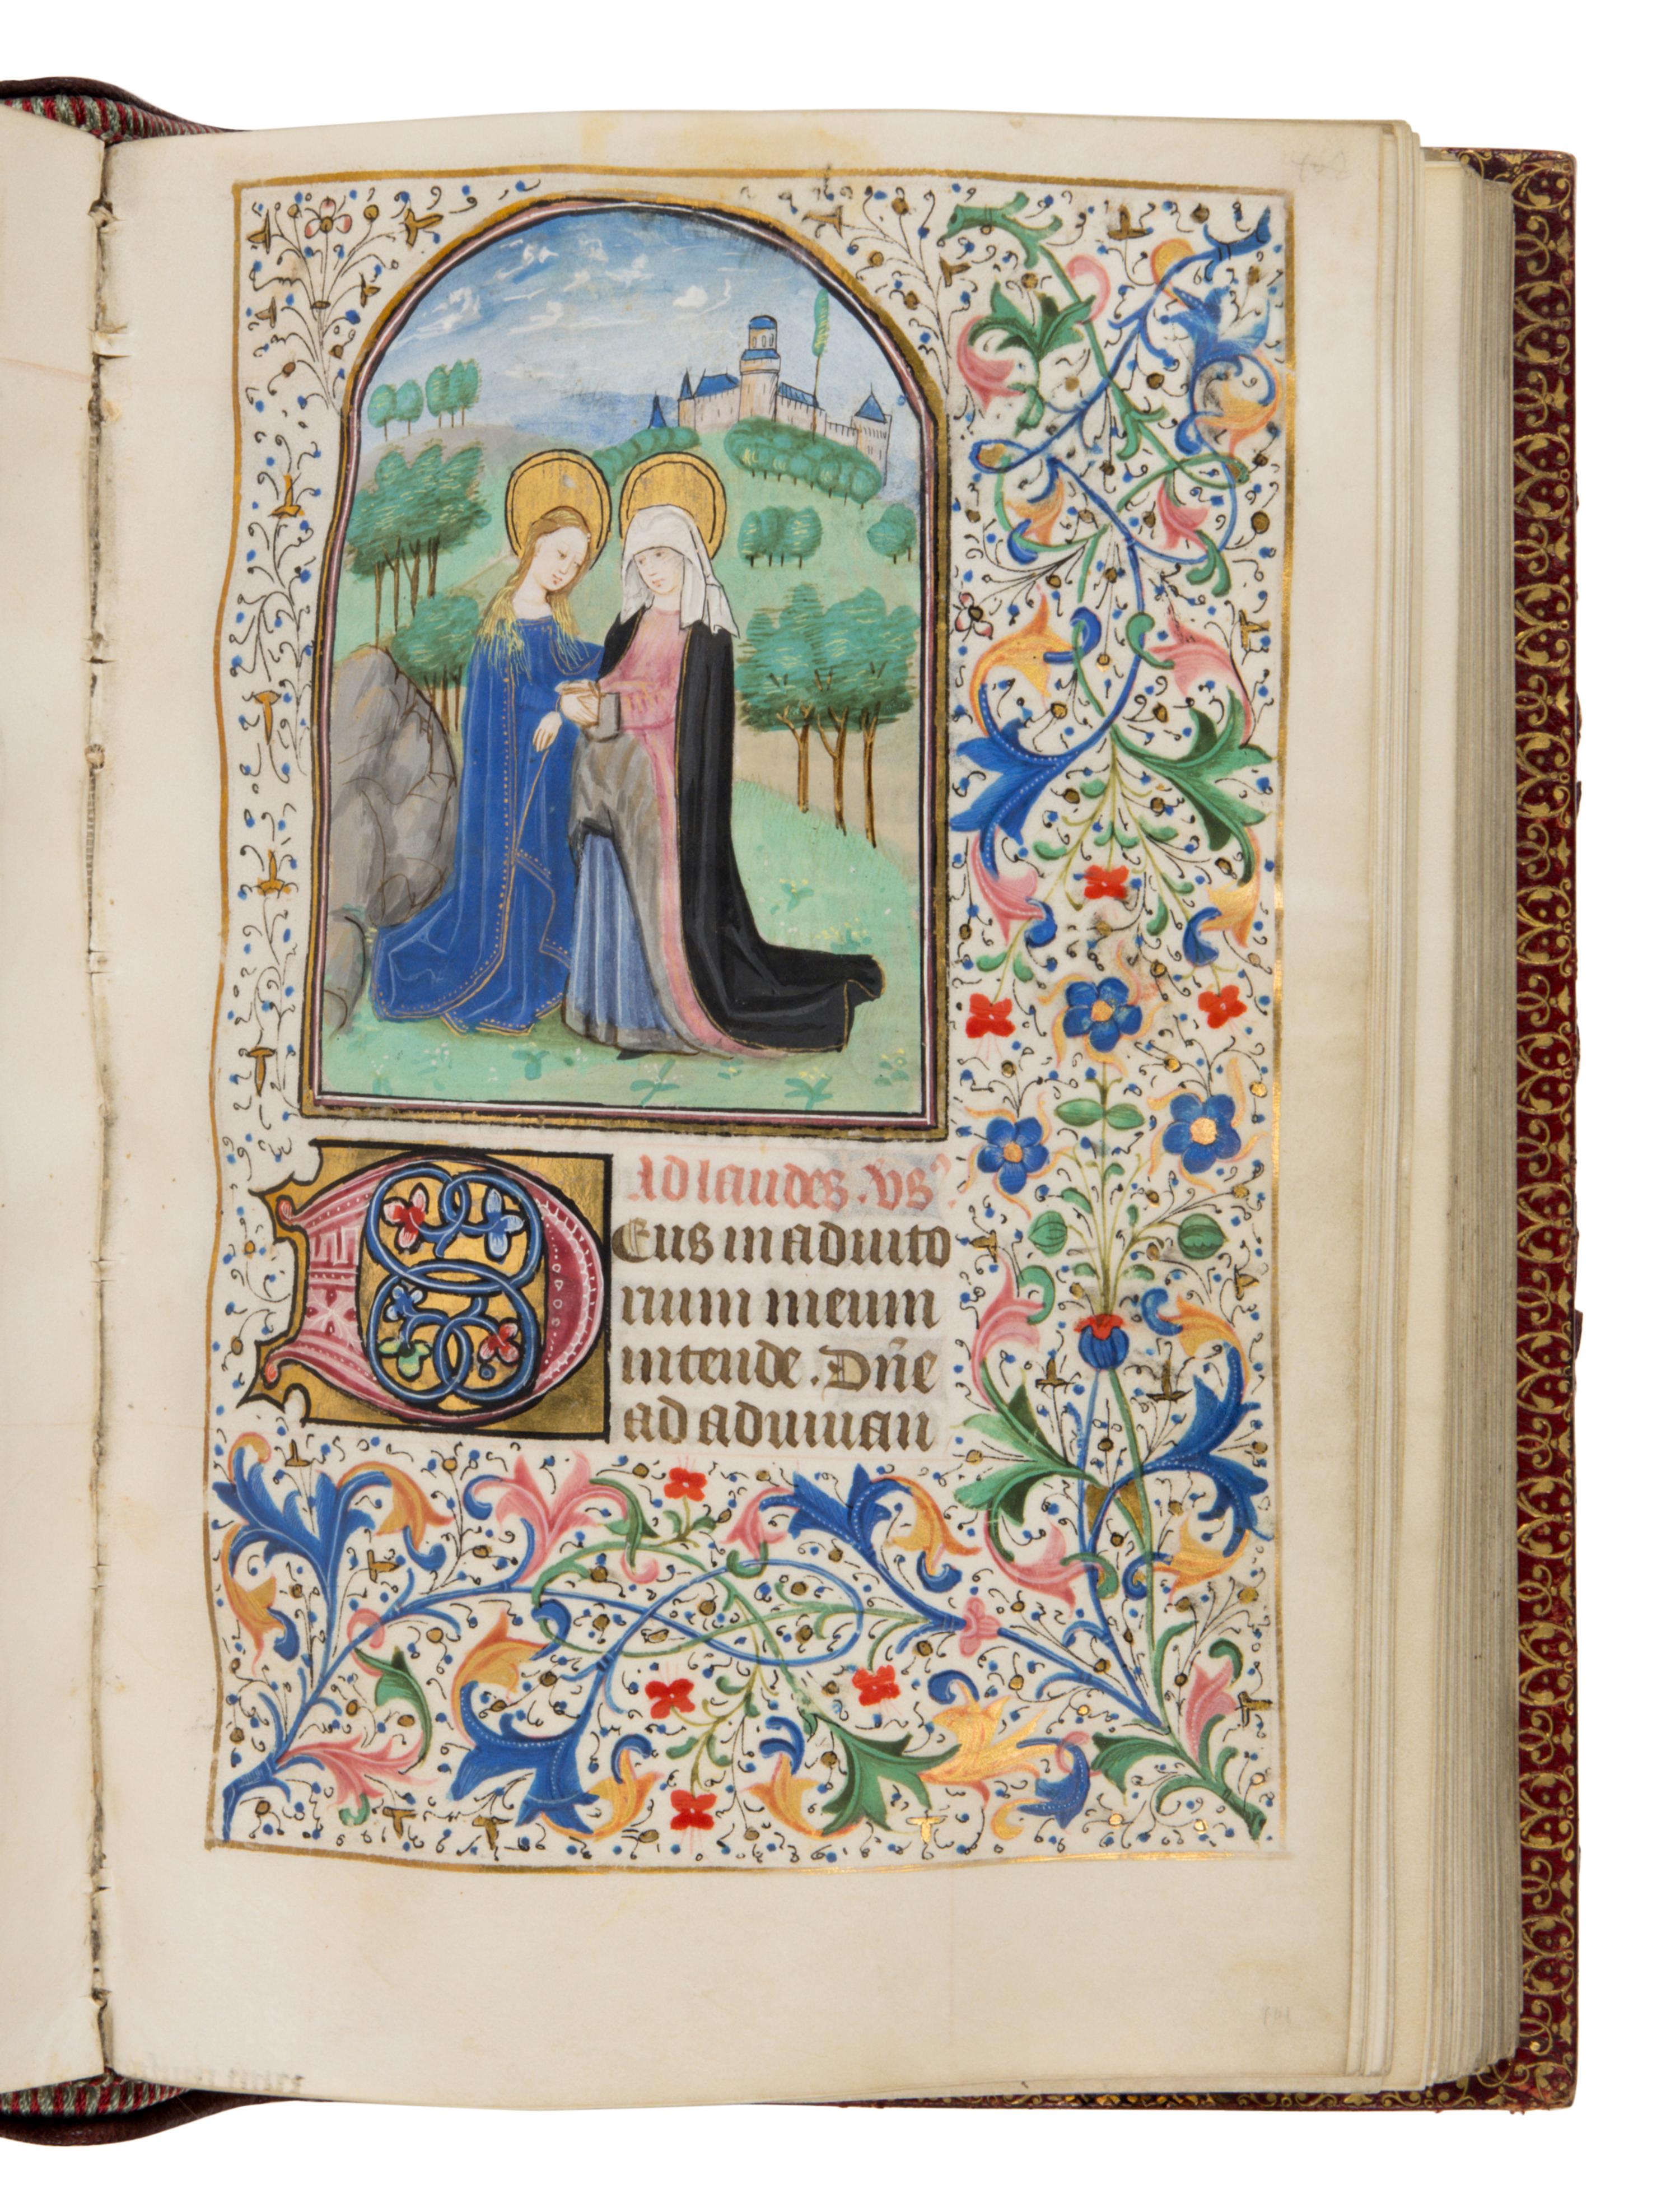 Ad laudes. vs
Deus in adiuto
rium meum
intende. Dn̄e
ad adiuuan